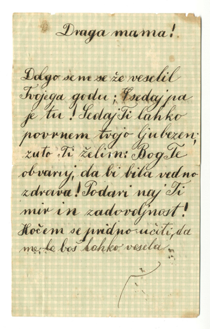 Draga mama!
Dolgo sem se že veselil
Tvojega godu; sedaj pa
je tu! Sedaj Ti lahko
povrnem tvojo ljubezen;
zato Ti želim: Bog Te
obvaruj, da bi bila vedno
zdrava! Podari naj Ti
mir in zadovoljnost!
Hočem se pridno učiti, da
me boš lahko vesela.